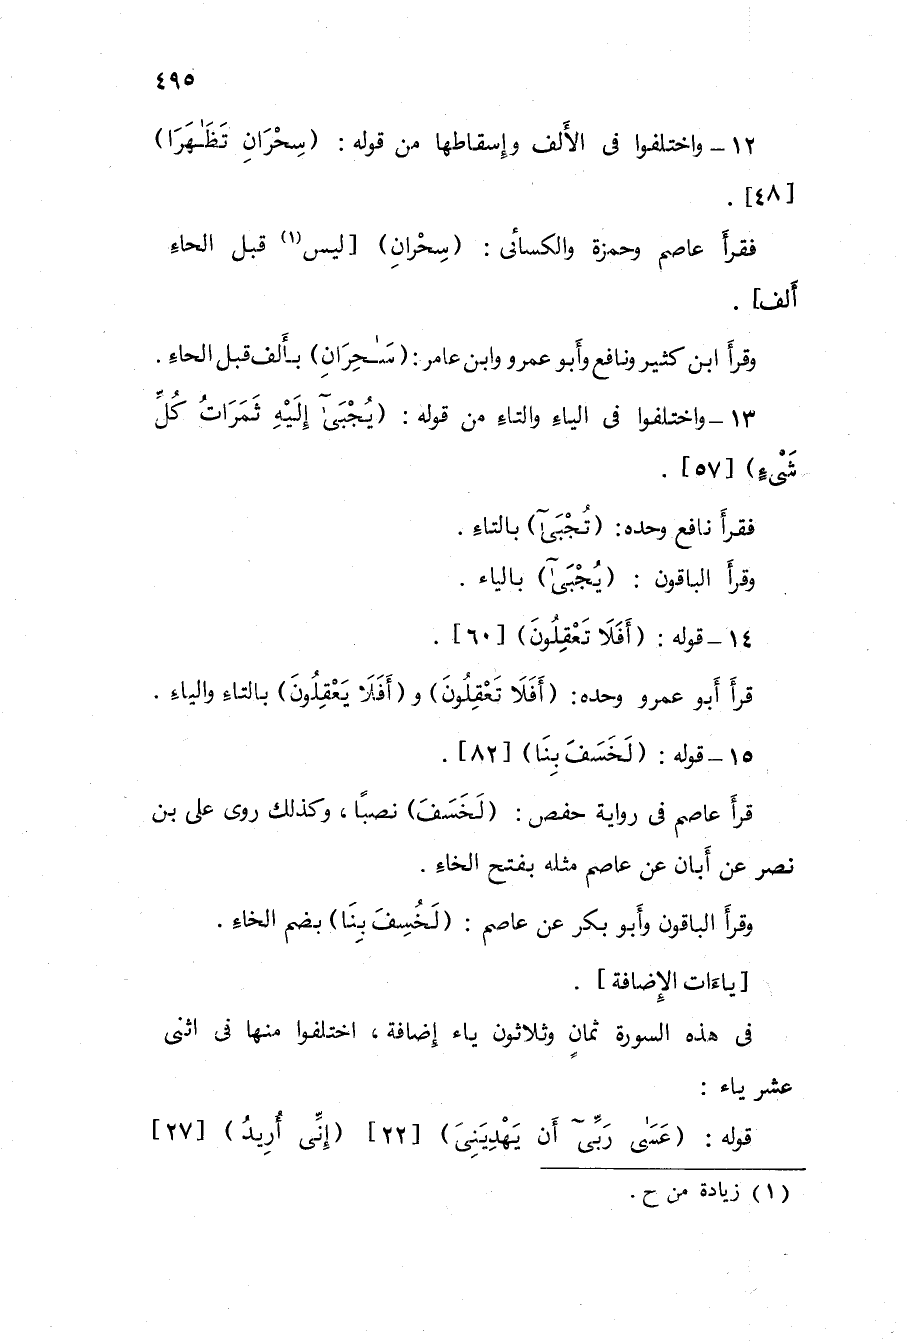 ٤٩٥
١٢ – واختلفوا فى الأَلف وإسقاطها من قوله : (سِحْرَانِ تَظَـٰهَرَا)
[٤٨] .
فقرأَ عاصم وحمزة والكسائى : (سِحْرانِ) [ليس(١) قبل الحاءِ
أَلف] .
وقرأَ ابن كثير ونافع وأَبو عمرو وابن عامر : (سَـٰحِرَانِ) بـأَلف قبل الحاءِ .
١٣ – واختلفوا فى الياءِ والتاءِ من قوله : (يُجْبَىٰٓ إِلَيْهِ ثَمَرَاتُ كُلِّ
شَىْءٍ) [٥٧] .
فقرأَ نافع وحده : (تُجْبَىٰٓ) بالتاءِ .
وقرأَ الباقون : (يُجْبَىٰٓ) بالياء .
١٤ – قوله : (أَفَلَا تَعْقِلُونَ) [٦٠] .
قرأَ أَبو عمرو وحده : (أَفَلَا تَعْقِلُونَ) و (أَفَلَا يَعْقِلُونَ) بالتاءِ والياءِ .
١٥ – قوله : (لَخَسَفَ بِنَا) [٨٢] .
قرأَ عاصم فى رواية حفص : (لَخَسَفَ) نصبًا ، وكذلك روى على بن
نصر عن أَبان عن عاصم مثله بفتح الخاءِ .
وقرأَ الباقون وأَبو بكر عن عاصم : (لَخُسِفَ بِنَا) بضم الخاءِ .
[ياءَات الإِضافة] .
فى هذه السورة ثمانٍ وثلاثون ياء إِضافة ، اختلفوا منها فى اثنى
عشر ياء :
قوله : (عَسَىٰ رَبِّىٓ أَن يَهْدِيَنِىَ) [٢٢] (إِنِّى أُرِيدُ) [٢٧]
(١) زيادة من ح .